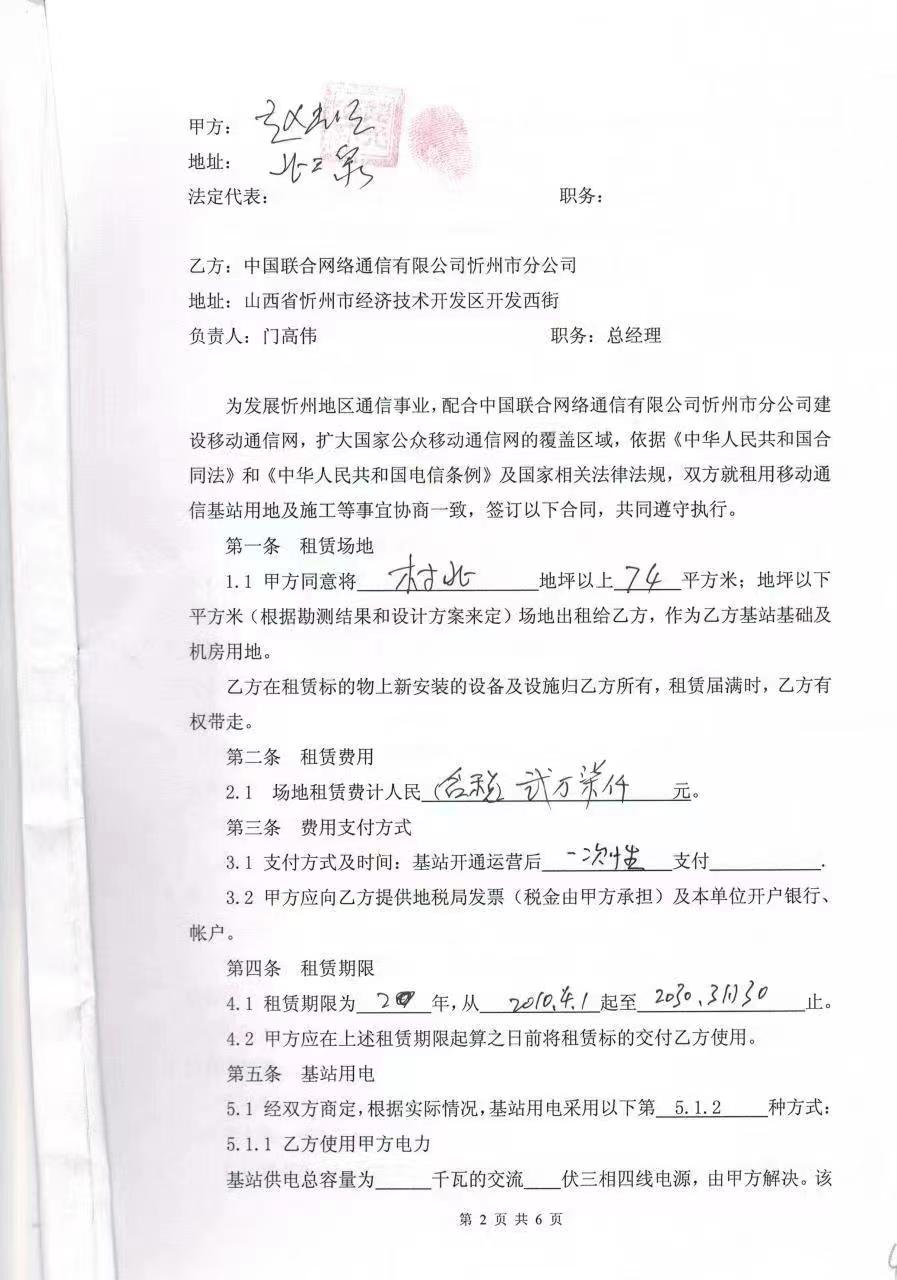 甲方：
地址：
法定代表： 职务：
乙方：中国联合网络通信有限公司忻州市分公司
地址：山西省忻州市经济技术开发区开发西街
负责人：门高伟 职务：总经理
为发展忻州地区通信事业，配合中国联合网络通信有限公司忻州市分公司建
设移动通信网，扩大国家公众移动通信网的覆盖区域，依据《中华人民共和国合
同法》和《中华人民共和国电信条例》及国家相关法律法规，双方就租用移动通
信基站用地及施工等事宜协商一致，签订以下合同，共同遵守执行。
第一条 租赁场地
1.1 甲方同意将 村北 地坪以上 74 平方米；地坪以下
平方米（根据勘测结果和设计方案来定）场地出租给乙方，作为乙方基站基础及
机房用地。
乙方在租赁标的物上新安装的设备及设施归乙方所有，租赁届满时，乙方有
权带走。
第二条 租赁费用
2.1 场地租赁费计人民（含税）贰万柒仟 元。
第三条 费用支付方式
3.1 支付方式及时间：基站开通运营后 一次性 支付__________.
3.2 甲方应向乙方提供地税局发票（税金由甲方承担）及本单位开户银行、
帐户。
第四条 租赁期限
4.1 租赁期限为 20 年，从 2010.4.1 起至 2030.3月30 止。
4.2 甲方应在上述租赁期限起算之日前将租赁标的交付乙方使用。
第五条 基站用电
5.1 经双方商定，根据实际情况，基站用电采用以下第 5.1.2 种方式：
5.1.1 乙方使用甲方电力
基站供电总容量为______千瓦的交流____伏三相四线电源，由甲方解决。该
第 2 页 共 6 页